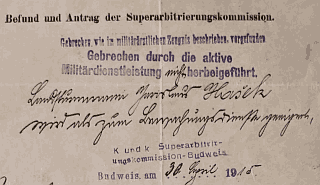 Befund und Antrag der Superarbitrierungskommission.
Gebrechen, wie im militärärztlichen Zeugnis beschrieben, vorgefunden
Gebrechen durch die aktive
Militärdienstleistung nicht herbeigeführt.
Landsturmmann Jaroslaus Hašek
wird als zum Bewachungsdienste geeignet,
K und k Superarbitrir-
ungskommission-Budweis.
Budweis, am 30. April 1915.